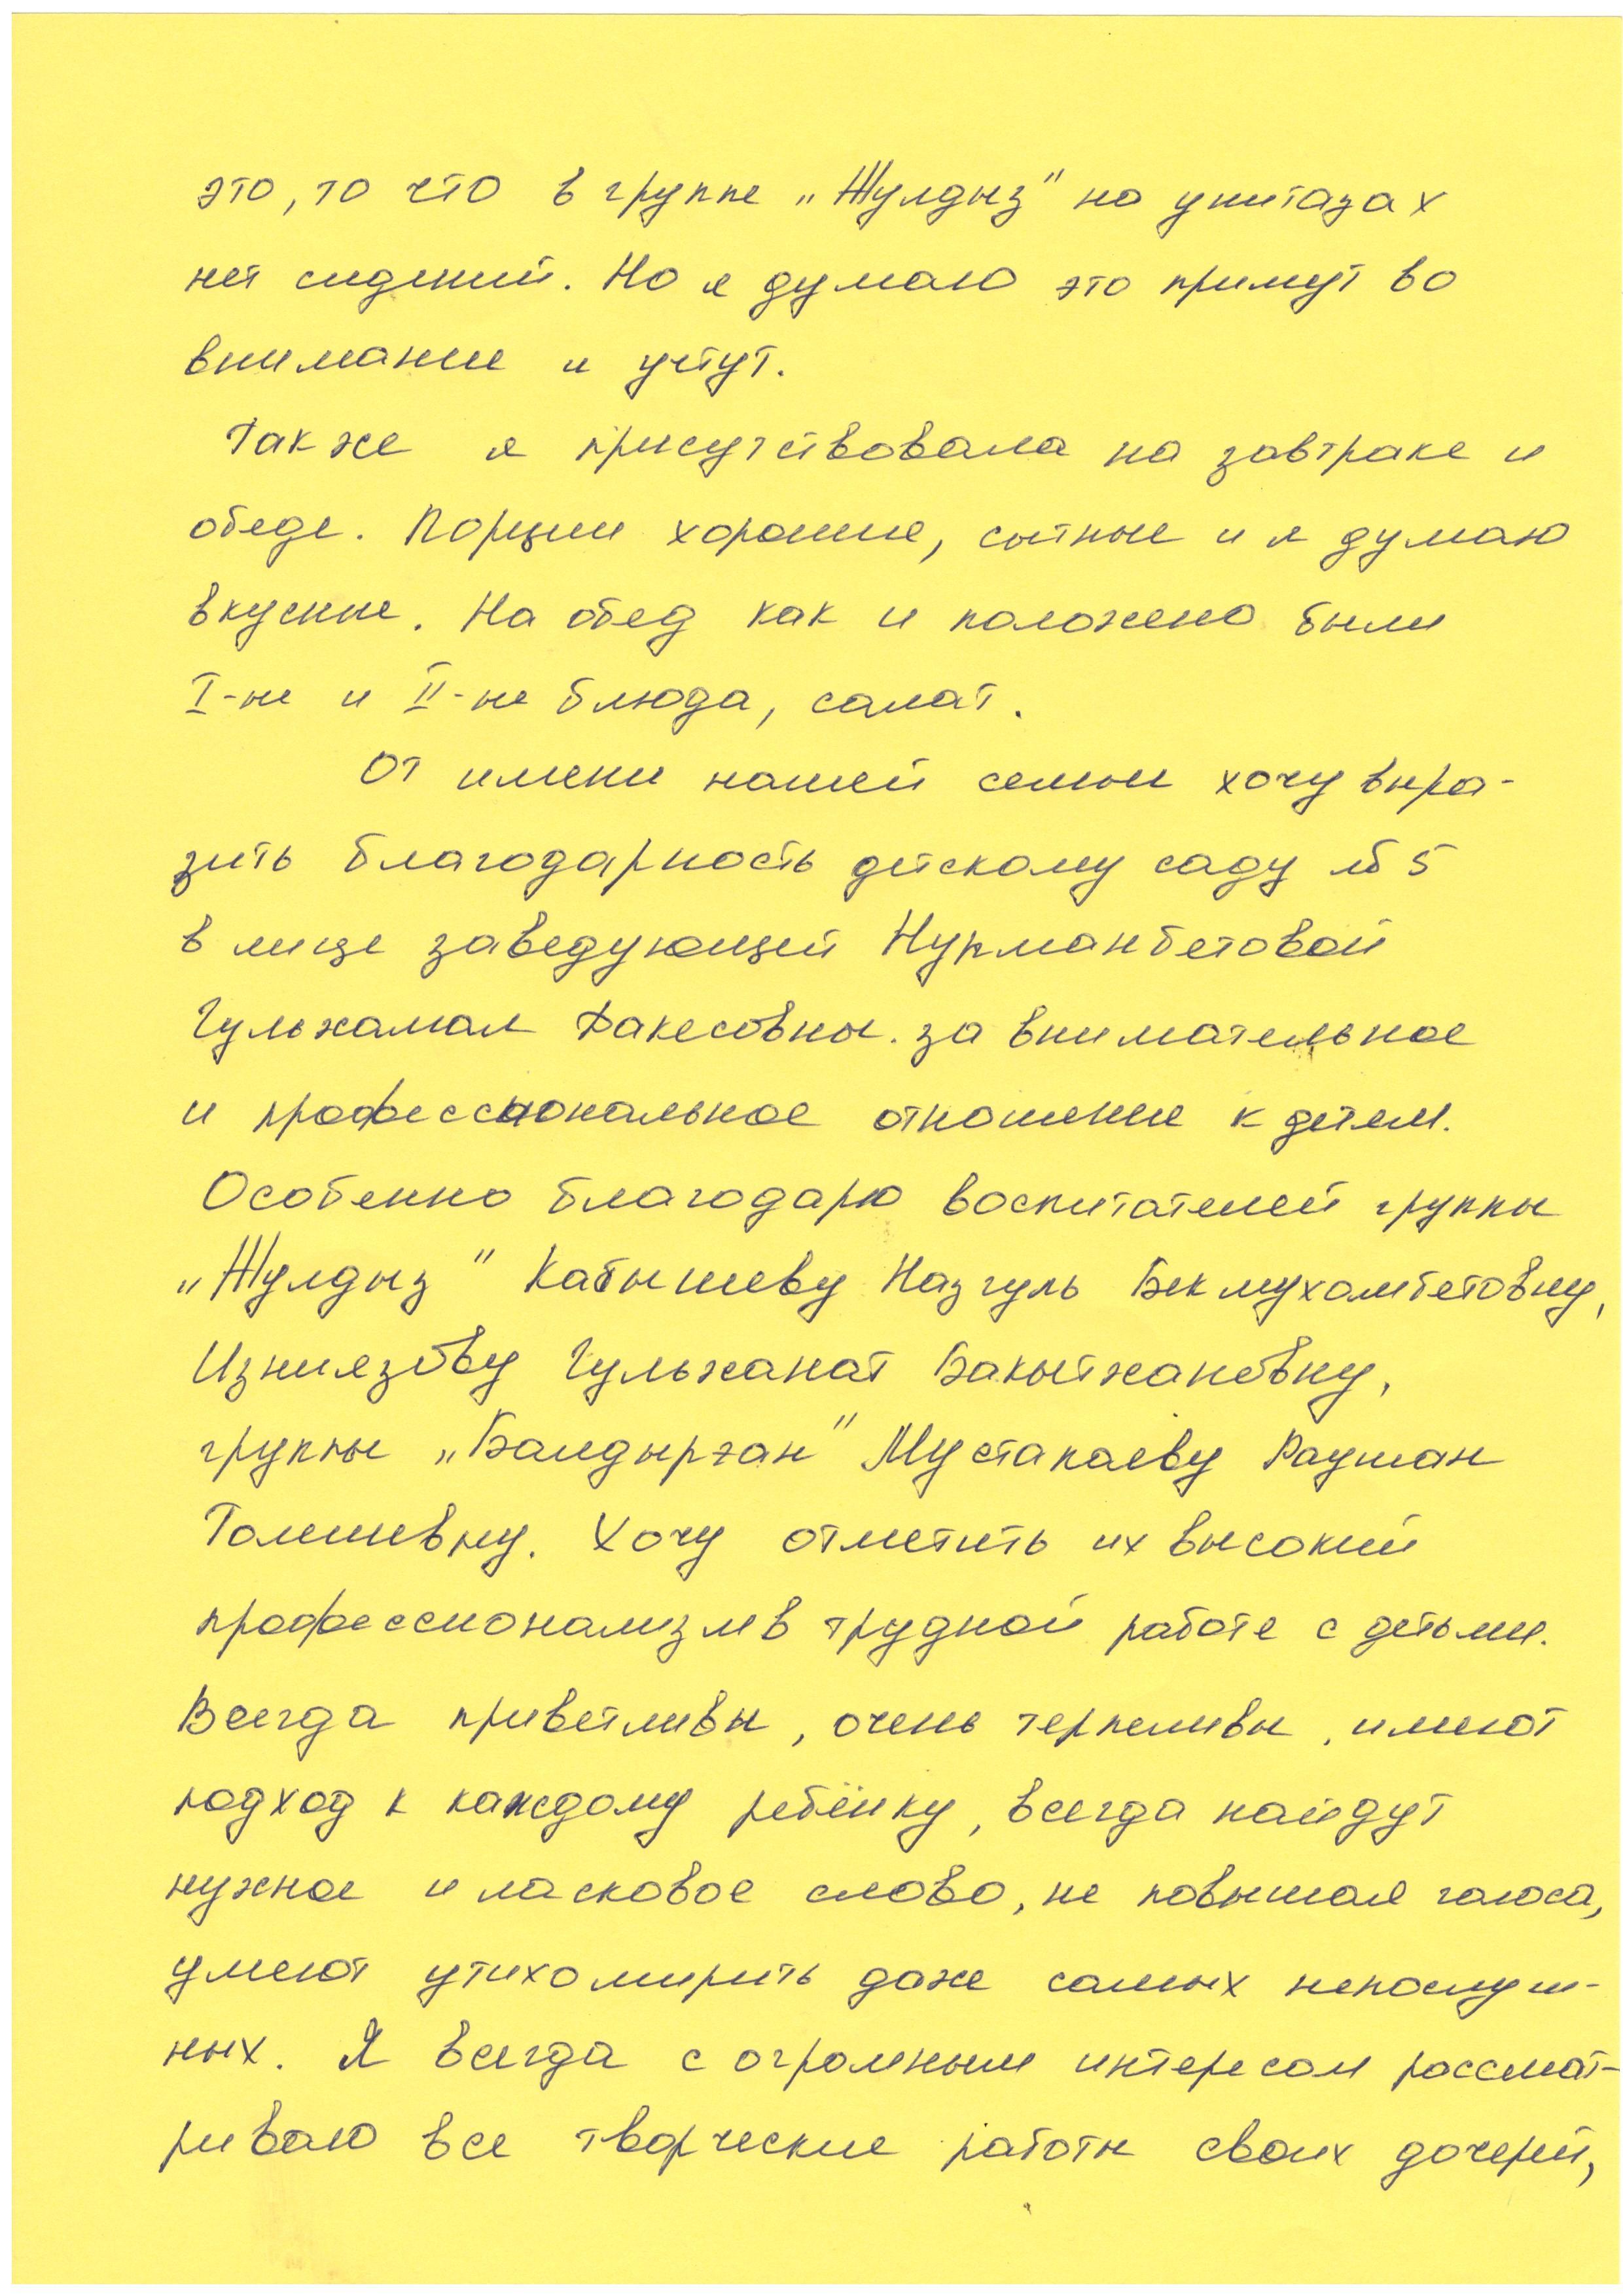 это, то что в группе „Жулдыз" на унитазах
нет сидений. Но я думаю это примут во
внимание и учтут.
Также я присутствовала на завтраке и
обеде. Порции хорошие, сытные и я думаю
вкусные. На обед как и положено были
I-ые и II-ые блюда, салат.
От имени нашей семьи хочу выра-
зить благодарность детскому саду № 5
в лице заведующей Нурманбетовой
Гульжамал Факесовны. за внимательное
и профессиональное отношение к детям.
Особенно благодарю воспитателей группы
„Жулдыз" Кабышеву Назгуль Бекмухамбетовну,
Изниязову Гульжанат Бакытжановну,
группы „Балдырган" Мустапаеву Раушан
Толешевну. Хочу отметить их высокий
профессионализм в трудной работе с детьми.
Всегда приветливы, очень терпеливы, имеют
подход к каждому ребёнку, всегда найдут
нужное и ласковое слово, не повышая голоса,
умеют утихомирить даже самых непослуш-
ных. Я всегда с огромным интересом рассмат-
риваю все творческие работы своих дочерей,